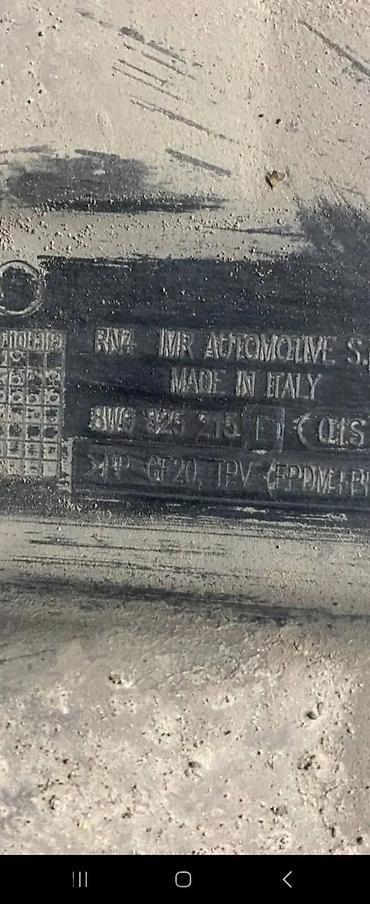 RN4 IMR AUTOMOTIVE S.
MADE IN ITALY
8W0 825 215
>PP GF20, TPV (EPDM+P